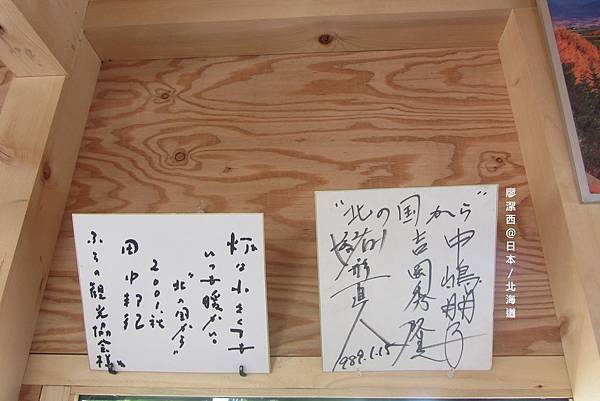 灯は小さくても
いつも暖かい。
"北の国から"
2001.秋
田中邦衛
ふらの観光協会様
"北の国から"
中嶋朋子
吉岡秀隆
緒形直人
1989.1.15
廖潔西@日本/北海道